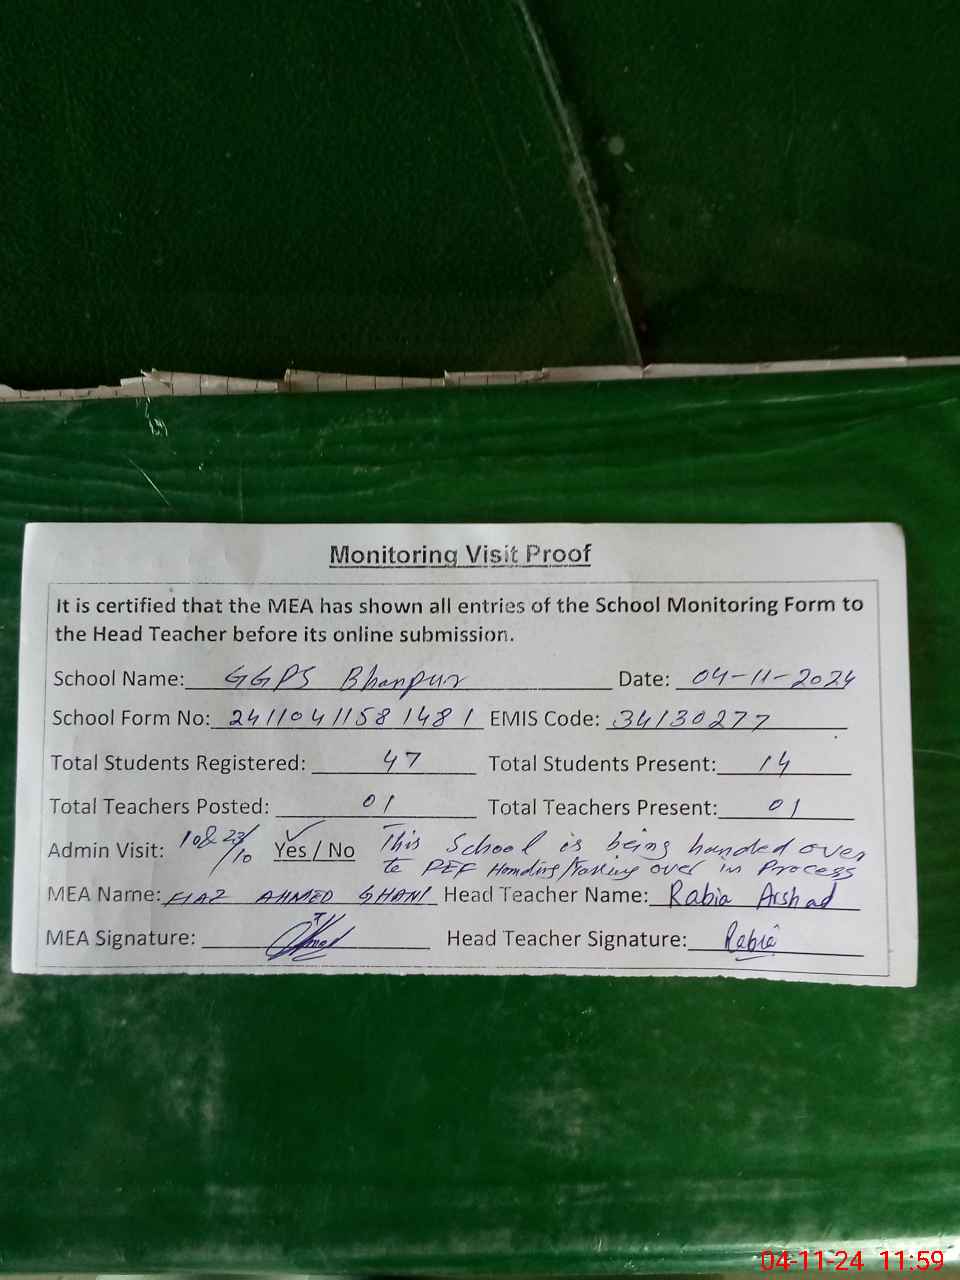 Monitoring Visit Proof
It is certified that the MEA has shown all entries of the School Monitoring Form to
the Head Teacher before its online submission.
School Name: GGPS Bhanpur Date: 04-11-2024
School Form No: 24110411581481 EMIS Code: 34130277
Total Students Registered: 47 Total Students Present: 14
Total Teachers Posted: 01 Total Teachers Present: 01
Admin Visit: 10 & 23/10 Yes / No This School is being handed over
to PEF Handing/Taking over in Process
MEA Name: FIAZ AHMED GHANI Head Teacher Name: Rabia Arshad
MEA Signature: Head Teacher Signature: Rabia
04-11-24 11:59